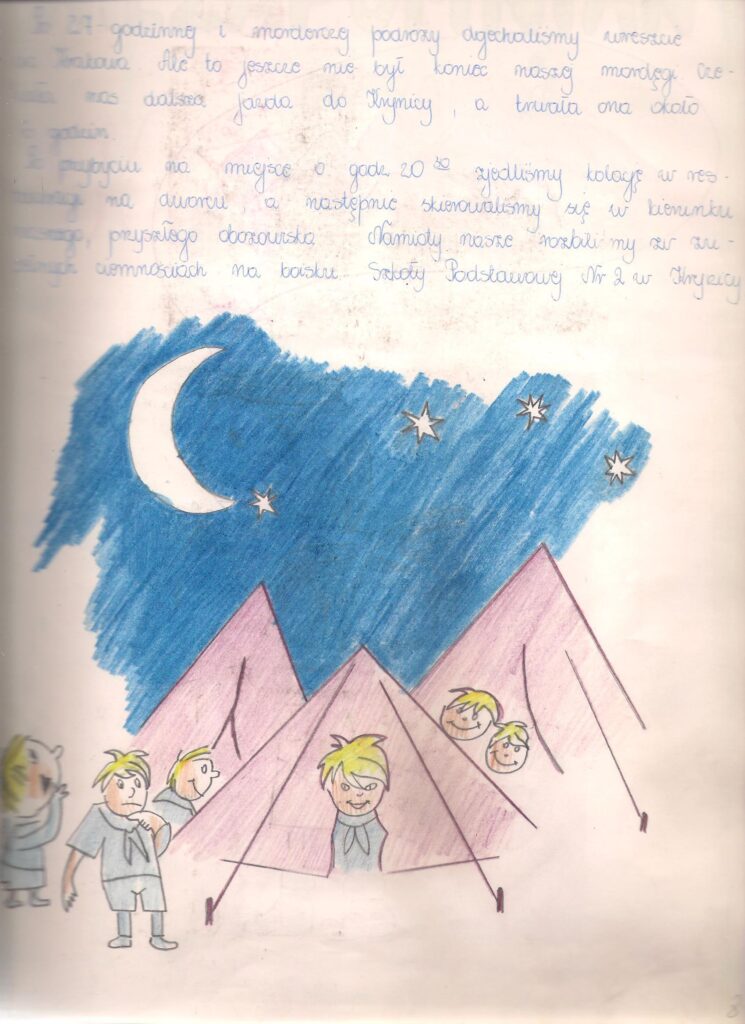 Po 27-godzinnej i morderczej podróży dojechaliśmy wreszcie
do Krakowa. Ale to jeszcze nie był koniec naszej mordęgi. Cze-
kała nas dalsza jazda do Krynicy, a trwała ona około
godzin.
Po przybyciu na miejsce o godz. 20³⁰ zjedliśmy kolację w res-
tauracji na dworcu, a następnie skierowaliśmy się w kierunku
naszego, przyszłego obozowiska. Namioty nasze rozbiliśmy w zu-
pełnych ciemnościach na boisku Szkoły Podstawowej Nr 2 w Krynicy
8